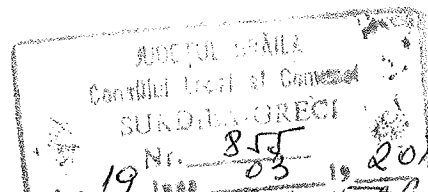 JUDEȚUL BRĂILA
Consiliul Local al Comunei
SURDILA-GRECI
Nr.
19 luna 03 19 20